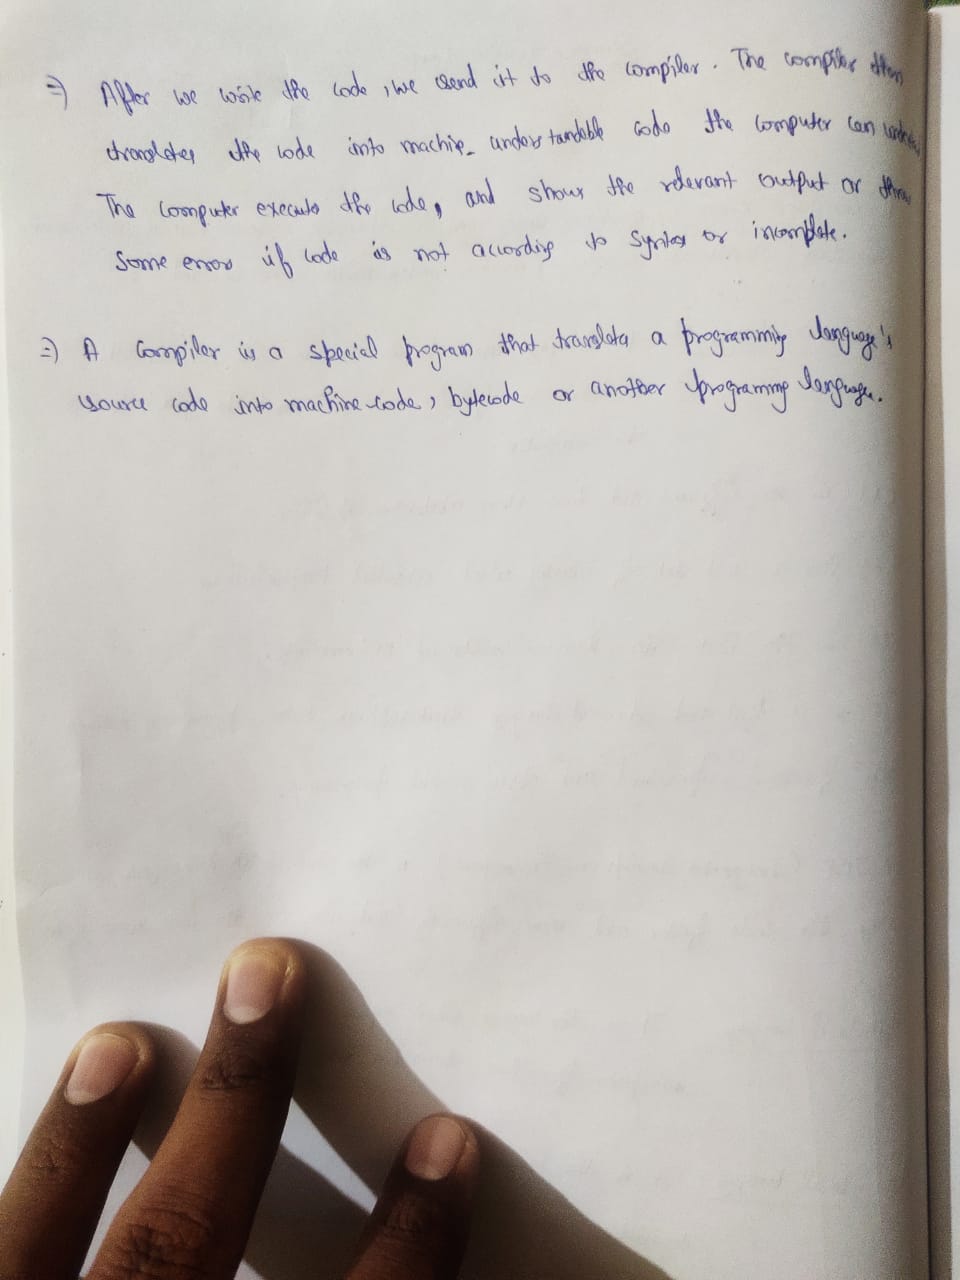 =) After we write the code, we send it to the compiler. The compiler then
translates the code into machine understandable code the computer can
The computer execute the code, and shows the relevant output or
some error if code is not according to syntax or incomplete.
=) A compiler is a special program that translate a programming language's
source code into machine-code, bytecode or another programming language.